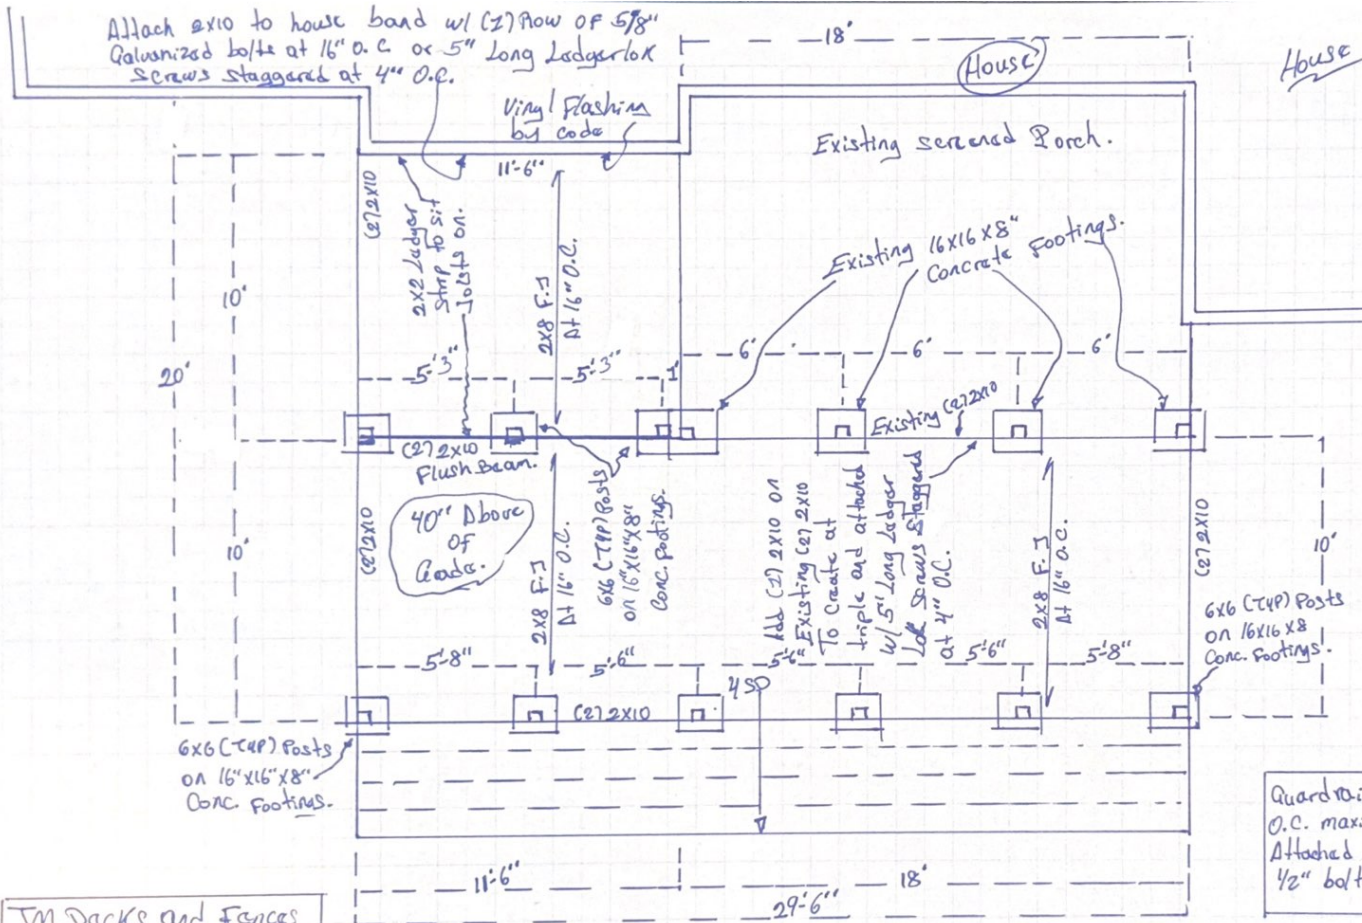 Attach 2x10 to house band w/ (1) Row of 5/8"
Galvanized bolts at 16" o.c. or 5" Long Ledgerlok
Screws staggered at 4" O.C.
18'
House
House
Vinyl Flashing
by code
Existing screened Porch.
11'-6"
(2) 2x10
2x2 Ledger
Strip to sit
Joists on.
2x8 F.J
At 16" O.C.
Existing 16x16x8"
Concrete Footings.
10'
20'
5'-3"
5'-3"
1'
6'
6'
6'
Existing (2) 2x10
(2) 2x10
Flush Beam.
40" Above
of
Grade.
(2) 2x10
10'
2x8 F.J
At 16" O.C.
6x6 (TYP) Posts
on 16"x16"x8"
Conc. Footings.
Add (1) 2x10 on
Existing (2) 2x10
To Create at
triple and attached
w/ 5" Long Ledger
Lok Screws Staggered
at 4" O.C.
2x8 F.J
At 16" O.C.
(2) 2x10
10'
6x6 (TYP) Posts
on 16x16x8
Conc. Footings.
5'-8"
5'-6"
5'-6"
5'-6"
5'-8"
4SP
(2) 2x10
6x6 (TYP) Posts
on 16"x16"x8"
Conc. Footings.
Guardrai
O.C. max
Attached
1/2" bolt
11'-6"
18'
29'-6"
Decks and Fences